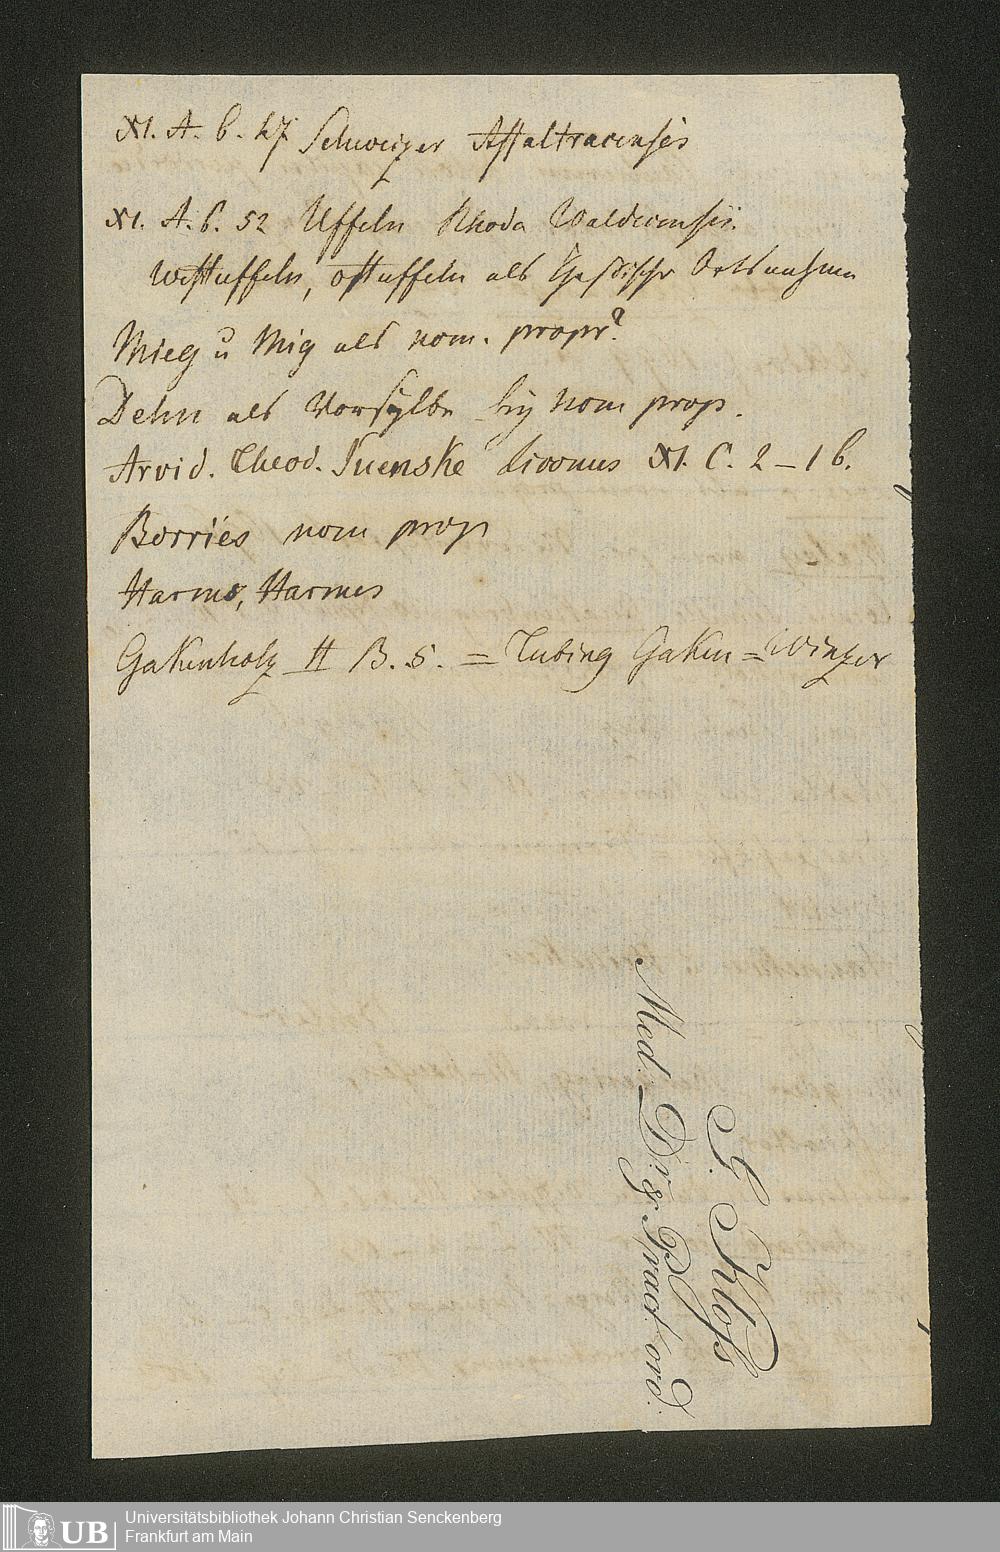 XI. A. b. 47 Schweizer Affaltracensis
XI. A. b. 52 Uffeln Rhoda Waldecensis.
Westuffeln, Ostuffeln als Hessische Ortsnahmen
Mieg u Mig als nom. propr?
Dehn als Vorsylbe bey Nom prop.
Arvid. Theod. Suenske Livonus XI. C. 2-1 b.
Borries nom prop
Harms, Harmes
Gakenholz II B. 5. = Tubing Gaken = Winzer
G. Kloß
Med. Dr. & Pract. ord.
UB
Universitätsbibliothek Johann Christian Senckenberg
Frankfurt am Main